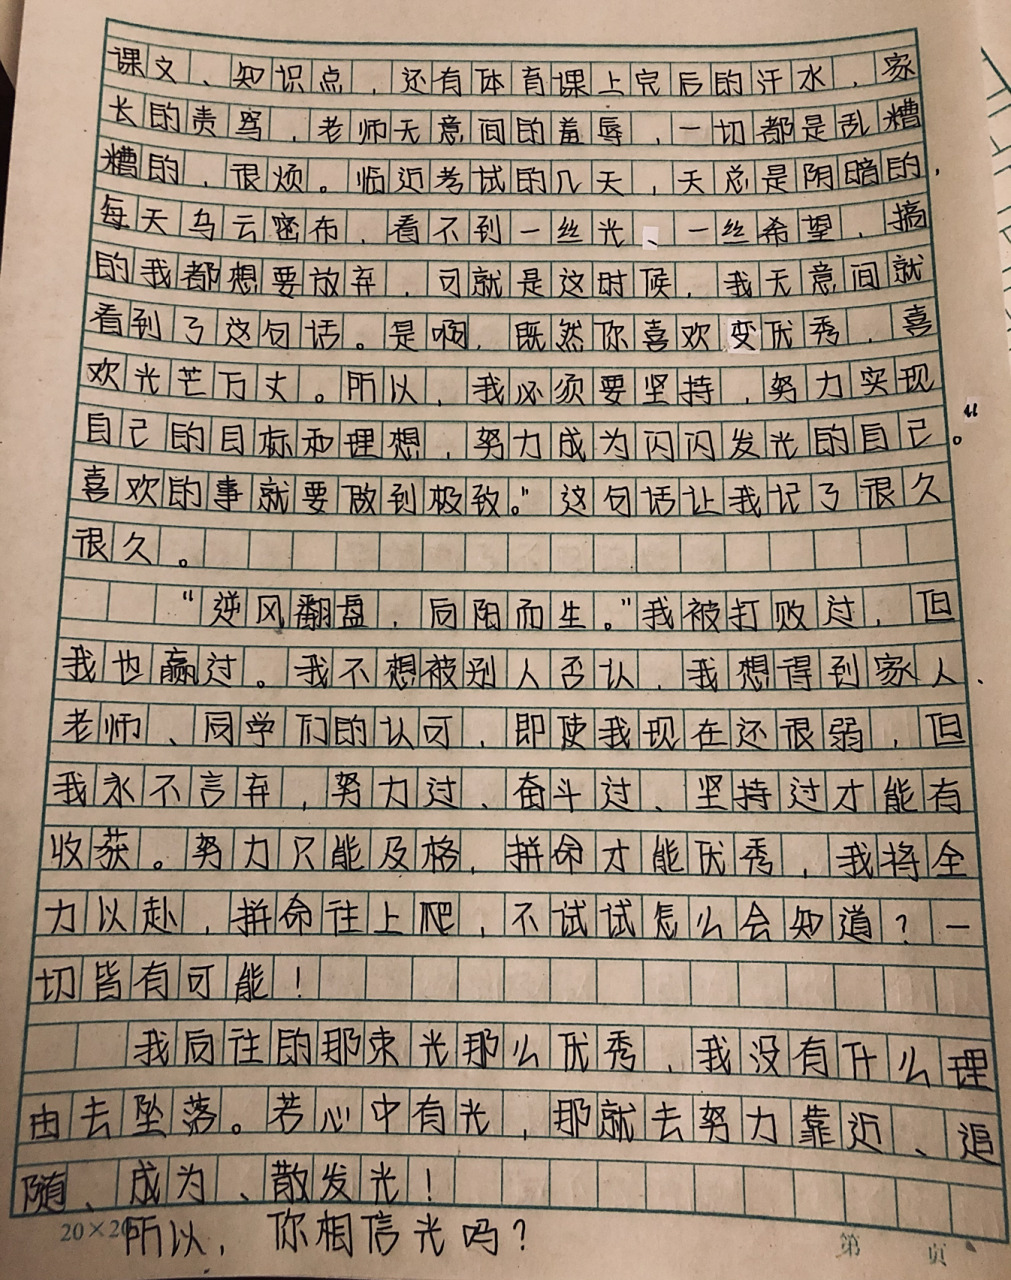 课文、知识点，还有体育课上完后的汗水，家
长的责骂，老师无意间的羞辱，一切都是乱糟
糟的，很烦。临近考试的几天，天总是阴暗的，
每天乌云密布，看不到一丝光、一丝希望，搞
的我都想要放弃，可就是这时候，我无意间就
看到了这句话。是啊，既然你喜欢变优秀，喜
欢光芒万丈。所以，我必须要坚持，努力实现
自己的目标和理想，努力成为闪闪发光的自己。“
喜欢的事就要做到极致。”这句话让我记了很久
很久。
“逆风翻盘，向阳而生。”我被打败过，但
我也赢过。我不想被别人否认，我想得到家人、
老师、同学们的认可，即使我现在还很弱，但
我永不言弃，努力过、奋斗过、坚持过才能有
收获。努力只能及格，拼命才能优秀，我将全
力以赴，拼命往上爬，不试试怎么会知道？一
切皆有可能！
我向往的那束光那么优秀，我没有什么理
由去坠落。若心中有光，那就去努力靠近、追
随、成为、散发光！
20×20
所以，你相信光吗？
第 页